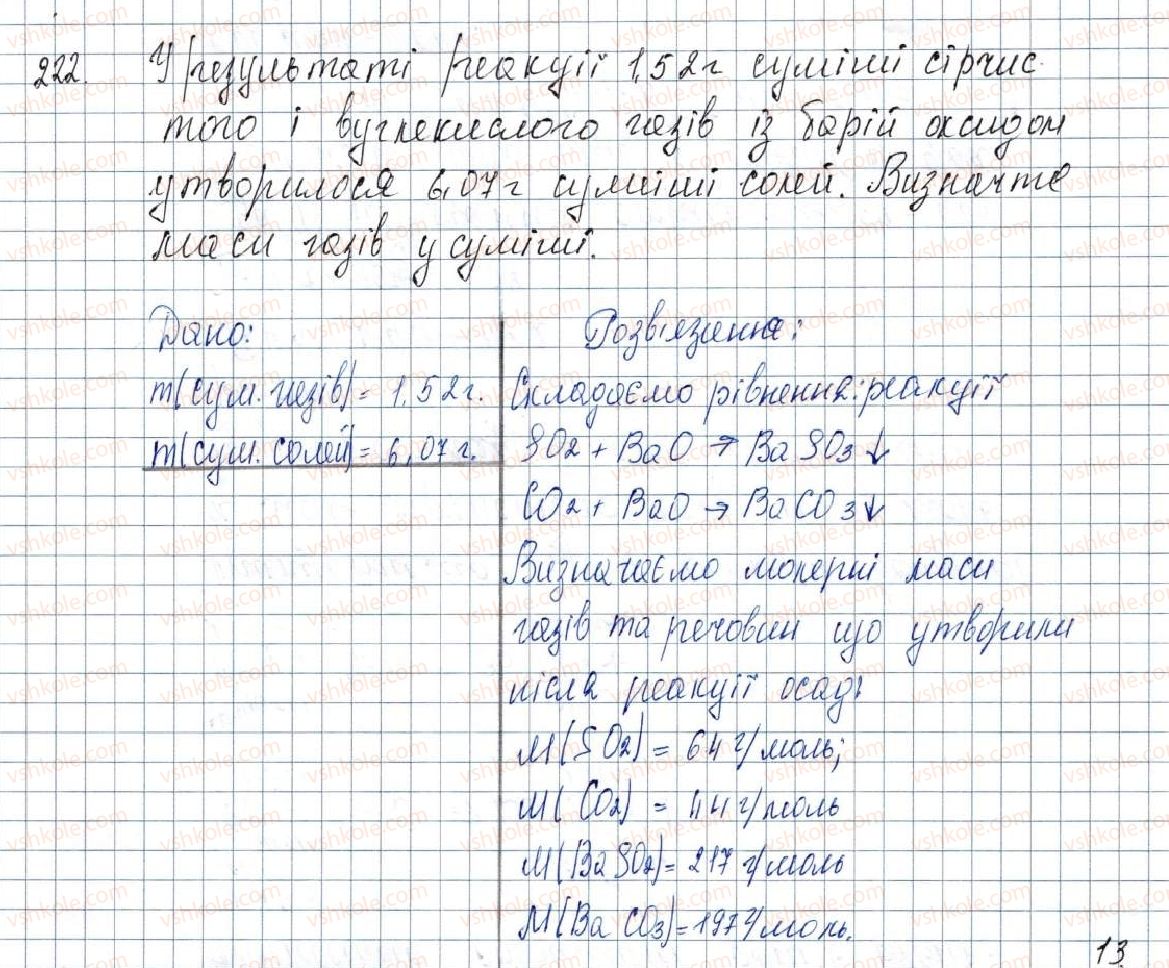 222. У результаті реакції 1,52 г суміші сірчис
того і вуглекислого газів із барій оксидом
утворилося 6,07 г суміші солей. Визначте
маси газів у суміші.
Дано:
m(сум. газів) = 1,52 г.
m(сум. солей) = 6,07 г.
Розв'язання:
Складаємо рівняння: реакції
SO2 + BaO → BaSO3↓
CO2 + BaO → BaCO3↓
Визначаємо молярні маси
газів та речовин що утворили
після реакції осад:
M(SO2) = 64 г/моль;
M(CO2) = 44 г/моль
M(BaSO2) = 217 г/моль
M(BaCO3) = 197 г/моль.
13